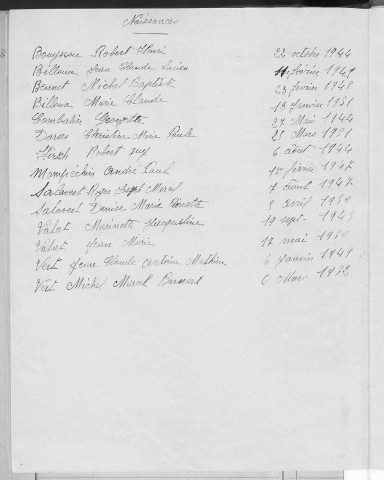 Naissances
Bouyssou Robert Henri 22 octobre 1944
Billoux Jean Claude Lucien 11 février 1948
Bennet Michel Baptiste 28 février 1948
Billoux Marie Claude 13 janvier 1951
Combalier Georgette 27 Mai 1944
Dorses Christine Marie Paule 25 Mars 1951
Hirsch Robert Guy 6 août 1944
Mompéchin André Paul 1er février 1947
Salavert Roger Joseph Marcel 7 août 1947
Salavert Denise Marie avril
Valat Marinette Jacqueline 19 sept.
Valat Jeane Marie 12 mai 1950
Vert Jean Claude Antoine Mathieu 6 janvier 1949
Vert Michel Marcel Bernard 6 Mars 1952